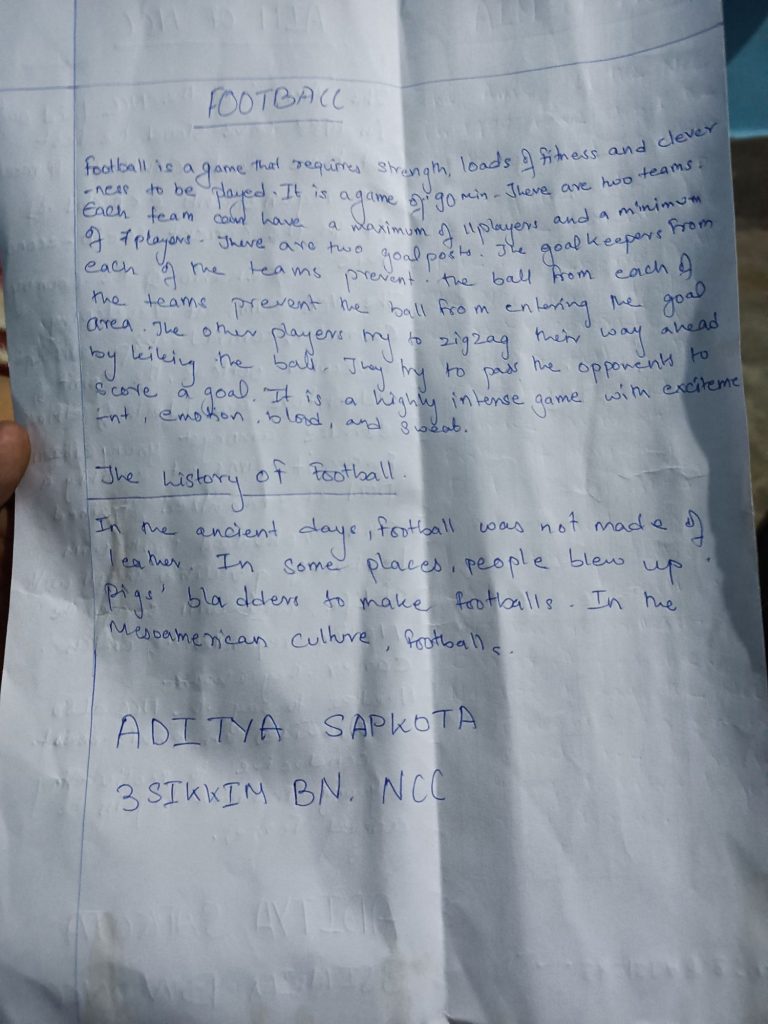 FOOTBALL
Football is a game that requires strength, loads of fitness and clever
-ness to be played. It is a game of 90 min. There are two teams.
Each team can have a maximum of 11 players and a minimum
of 7 players. There are two goal posts. The goal keepers from
each of the teams prevent the ball from each of
the teams prevent the ball from entering the goal
area. The other players try to zigzag their way ahead
by kiking the ball. They try to pass the opponents to
score a goal. It is a highly intense game with exciteme
-nt, emotion, blood, and sweat.
The history of Football.
In the ancient days, football was not made of
leather. In some places, people blew up
pigs' bladders to make footballs. In the
Mesoamerican culture, footballs.
ADITYA SAPKOTA
3 SIKKIM BN. NCC